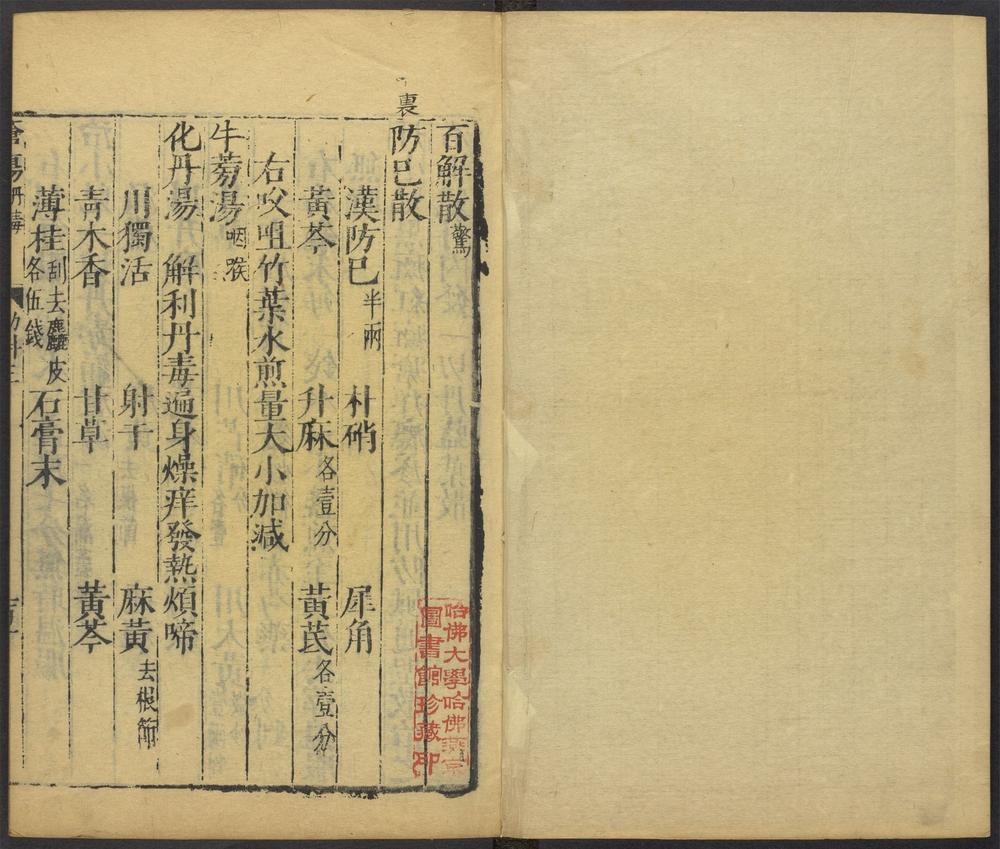 百解散驚
裏
防巳散
漢防巳半兩 朴硝 犀角
黃芩 升麻各壹分 黃芪各壹分
右㕮咀竹葉水煎量大小加減
牛蒡湯咽喉
化丹湯 解利丹毒遍身燥痒發熱煩啼
川獨活 射干 麻黃去根節
靑木香 甘草 黃芩
薄桂刮去麤皮各伍錢 石膏末
瘡瘍丹毒
哈佛大學哈佛燕京
圖書館珍藏印